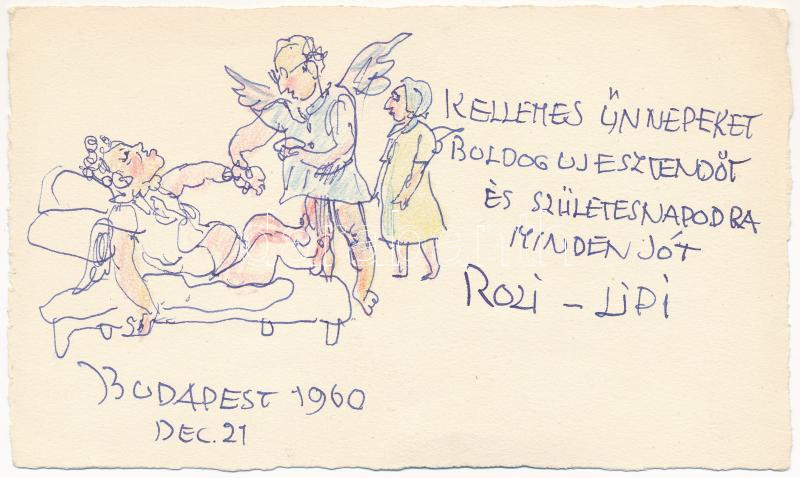 KELLEMES ÜNNEPEKET
BOLDOG UJESZTENDŐT
ÉS SZÜLETESNAPODRA
MINDEN JÓT
ROZI – LIPI
BUDAPEST 1960
DEC. 21